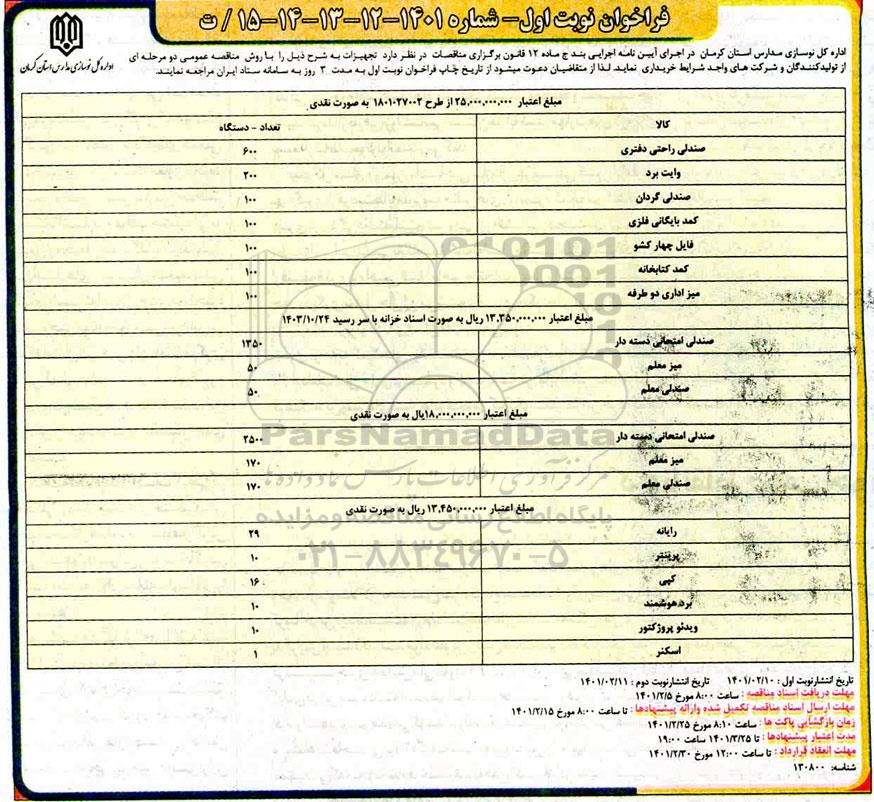 فراخوان نوبت اول- شماره ۱۴۰۱-۱۲-۱۳-۱۴-۱۵ / ت
اداره کل نوسازی مدارس استان کرمان
اداره کل نوسازی مدارس استان کرمان در اجرای آیین نامه اجرایی بند ج ماده ۱۲ قانون برگزاری مناقصات در نظر دارد تجهیزات به شرح ذیل را با روش مناقصه عمومی دو مرحله ای
از تولیدکنندگان و شرکت های واجد شرایط خریداری نماید. لذا از متقاضیان دعوت میشود از تاریخ چاپ فراخوان نوبت اول به مدت ۳ روز به سامانه ستاد ایران مراجعه نمایند.
مبلغ اعتبار ۲۵,۰۰۰,۰۰۰,۰۰۰ از طرح ۱۸۰۱۰۲۷۰۰۲ به صورت نقدی
کالا تعداد - دستگاه
صندلی راحتی دفتری ۶۰۰
وایت برد ۲۰۰
صندلی گردان ۱۰۰
کمد بایگانی فلزی ۱۰۰
فایل چهار کشو ۱۰۰
کمد کتابخانه ۱۰۰
میز اداری دو طرفه ۱۰۰
مبلغ اعتبار ۱۳,۳۵۰,۰۰۰,۰۰۰ ریال به صورت اسناد خزانه با سر رسید ۱۴۰۳/۱۰/۲۴
صندلی امتحانی دسته دار ۱۳۵۰
میز معلم ۵۰
صندلی معلم ۵۰
مبلغ اعتبار ۱۸,۰۰۰,۰۰۰,۰۰۰ریال به صورت نقدی
صندلی امتحانی دسته دار ۲۵۰۰
میز معلم ۱۷۰
صندلی معلم ۱۷۰
مبلغ اعتبار ۱۳,۴۵۰,۰۰۰,۰۰۰ ریال به صورت نقدی
رایانه ۲۹
پرینتر ۱۰
کپی ۱۶
برد هوشمند ۱۰
ویدئو پروژکتور ۱۰
اسکنر ۱
ParsNamadData
مرکز فرآوری اطلاعات پارس نماد داده ها
پایگاه اطلاع رسانی مناقصه و مزایده
۰۲۱-۸۸۳۴۹۶۷۰-۵
تاریخ انتشارنوبت اول : ۱۴۰۱/۰۲/۱۰ تاریخ انتشارنوبت دوم : ۱۴۰۱/۰۲/۱۱
مهلت دریافت اسناد مناقصه : ساعت ۸:۰۰ مورخ ۱۴۰۱/۲/۵
مهلت ارسال اسناد مناقصه تکمیل شده وارائه پیشنهادها : تا ساعت ۸:۰۰ مورخ ۱۴۰۱/۲/۱۵
زمان بازگشایی پاکت ها : ساعت ۸:۱۰ مورخ ۱۴۰۱/۲/۲۵
مدت اعتبار پیشنهادها : تا ۱۴۰۱/۳/۲۵ ساعت ۱۹:۰۰
مهلت انعقاد قرارداد : تا ساعت ۱۲:۰۰ مورخ ۱۴۰۱/۲/۳۰
شناسه: ۱۳۰۸۰۰